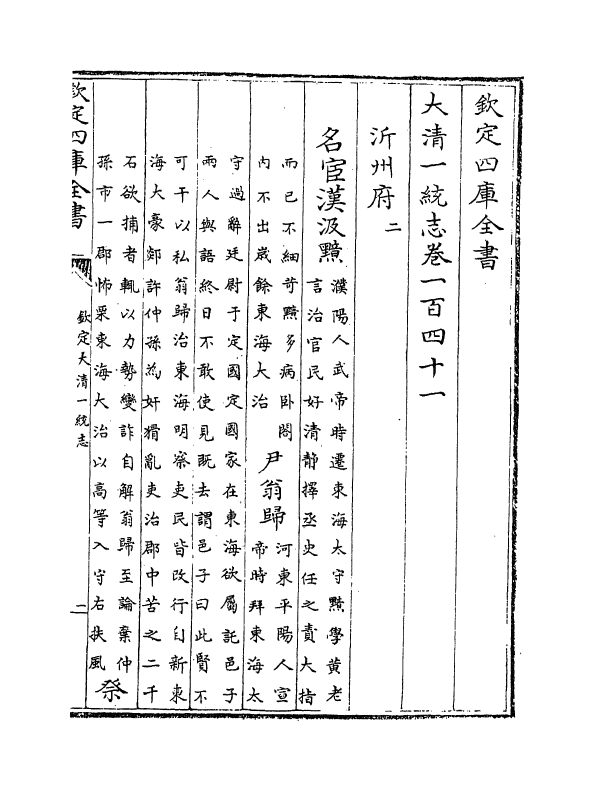 欽定四庫全書
大清一統志卷一百四十一
沂州府二
名宦漢汲黯
濮陽人武帝時遷東海太守黯學黃老
言治官民好清靜擇丞史任之責大指
而已不細苛黯多病卧閤
内不出歲餘東海大治
尹翁歸
河東平陽人宣
帝時拜東海太
守過辭廷尉于定國定國家在東海欲屬託邑子
兩人與語終日不敢使見既去謂邑子曰此賢不
可干以私翁歸治東海明察吏民皆改行自新東
海大豪郯許仲孫為奸猾亂吏治郡中苦之二千
石欲捕者輒以力勢變詐自解翁歸至論棄仲
孫市一郡怖栗東海大治以高等入守右扶風
祭
欽定四庫全書
欽定大清一統志
二